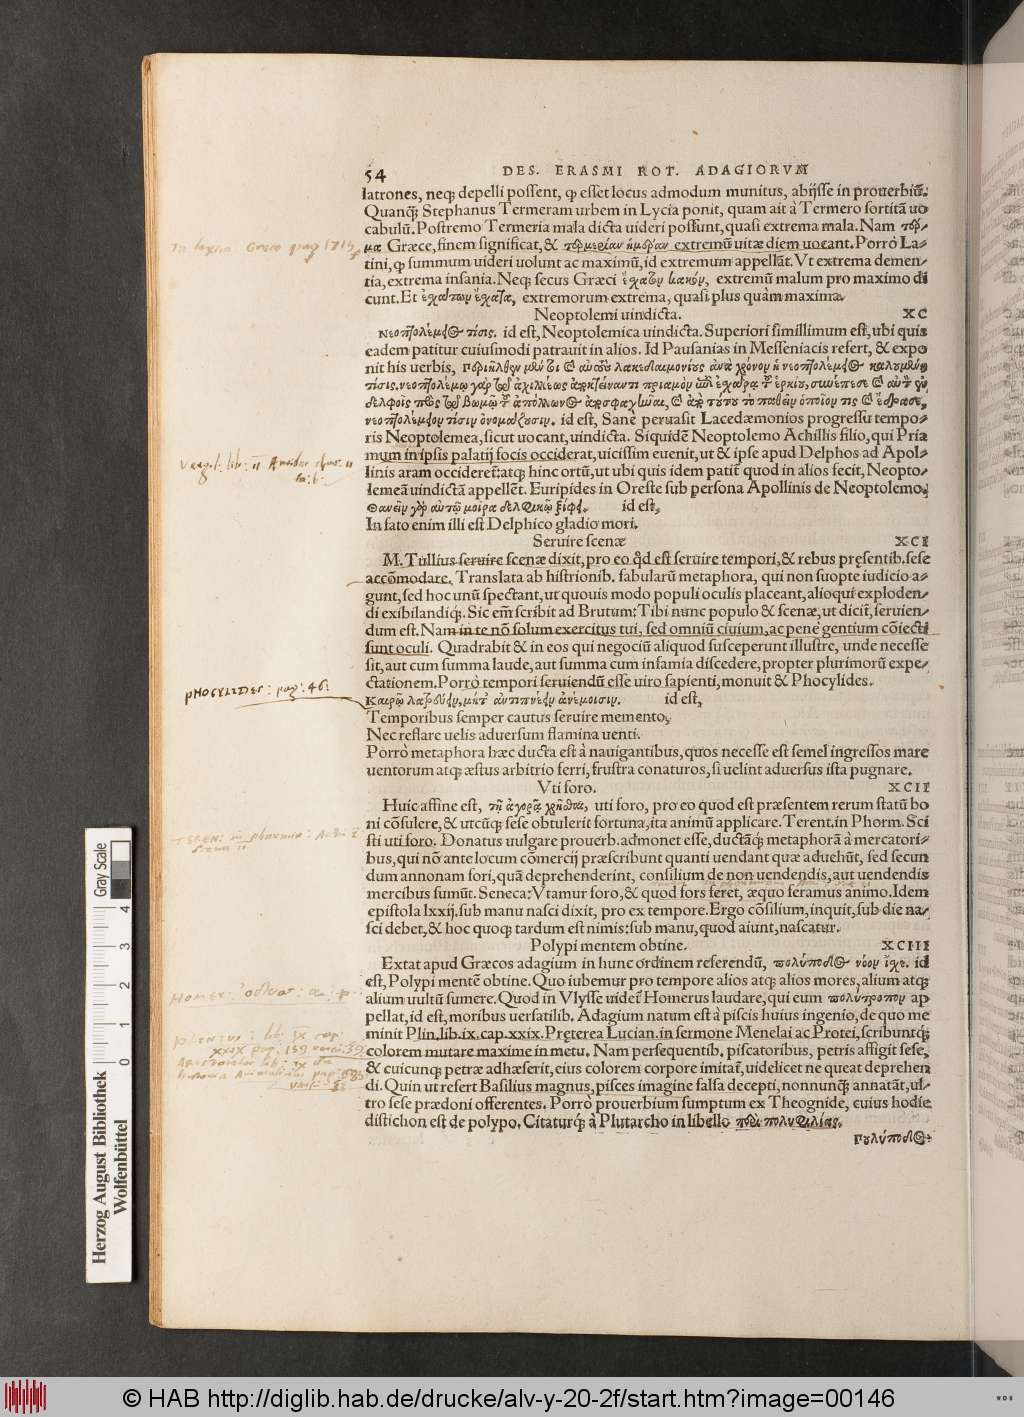 54 DES. ERASMI ROT. ADAGIORVM
latrones, neq; depelli possent, ꝙ esset locus admodum munitus, abijsse in prouerbiũ.
Quanq̃; Stephanus Termeram urbem in Lycia ponit, quam ait à Termero sortitã uo
cabulũ. Postremo Termeria mala dicta uideri possunt, quasi extrema mala. Nam τέρ-
In lexico Graeco pag 1719
μα Græce, finem significat, & τερμερίαν ἡμέραν extremũ uitæ diem uocant. Porrò La-
tini, ꝙ summum uideri uolunt ac maximũ, id extremum appellãt. Vt extrema demen-
tia, extrema insania. Neq; secus Græci ἔχατον κακόν, extremũ malum pro maximo di
cunt. Et ἐχάτων ἔχατα, extremorum extrema, quasi plus quàm maxima.
Neoptolemi uindicta. XC
Νεοπτολέμειος τίσις. id est, Neoptolemica uindicta. Superiori simillimum est, ubi quis
eadem patitur cuiusmodi patrauit in alios. Id Pausanias in Messeniacis refert, & expo
nit his uerbis, περιῆλθεν μὲν τοι καὶ αὐτοὺς λακεδαιμονίους ἀνὰ χρόνον ἡ νεοπτολέμειος καλουμένη
τίσις. νεοπτολέμῳ γὰρ τῷ ἀχιλλέως ἀποκτείναντι πριαμον ἐπὶ ἐχάρᾳ τοῦ ἑρκίου, συνέπεσε καὶ αὐτὸν ἐν
δελφοῖς πρὸς τῷ βωμῷ τοῦ ἀπόλλωνος ἀποσφαγῆναι, καὶ ἀπὸ τούτου τὸ παθεῖν ὁποῖον τις καὶ ἔδρασε,
νεοπτολέμειον τίσιν ὀνομαζουσιν. id est, Sanè peruasit Lacedæmonios progressu tempo-
ris Neoptolemea, sicut uocant, uindicta. Siquidẽ Neoptolemo Achillis filio, qui Pria
Vergil: lib: II
mum in ipsis palatij focis occiderat, uicissim euenit, ut & ipse apud Delphos ad Apol-
linis aram occideret̃: atq; hinc ortũ, ut ubi quis idem patit̃ quod in alios fecit, Neopto-
lemeã uindictã appellẽt. Euripides in Oreste sub persona Apollinis de Neoptolemo.
Θανεῖν γὰρ αὐτῷ μοῖρα δελφικῷ ξίφει. id est,
In fato enim illi est Delphico gladio mori.
Seruire scenæ XCI
M. Tullius seruire scenæ dixit, pro eo q̃d est seruire tempori, & rebus pręsentib. sese
accõmodare. Translata ab histrionib. fabularũ metaphora, qui non suopte iudicio a-
gunt, sed hoc unũ spectant, ut quouis modo populi oculis placeant, alioqui exploden-
di exibilandiq;. Sic em̃ scribit ad Brutum: Tibi nunc populo & scenæ, ut dicit̃, seruien-
dum est. Nam in te nõ solum exercitus tui, sed omniũ ciuium, ac pene gentium cõiecti
sunt oculi. Quadrabit & in eos qui negociũ aliquod susceperunt illustre, unde necesse
sit, aut cum summa laude, aut summa cum infamia discedere, propter plurimorũ expe-
ctationem. Porrò tempori seruiendũ esse uiro sapienti, monuit & Phocylides.
PHOCYLIDES: pag: 46.
Καιρῷ λατρεύειν, μήτ' ἀντιπνέειν ἀνέμοισιν. id est,
Temporibus semper cautus seruire memento,
Nec reflare uelis aduersum flamina uenti.
Porrò metaphora hæc ducta est à nauigantibus, quos necesse est semel ingressos mare
uentorum atq; æstus arbitrio ferri, frustra conaturos, si uelint aduersus ista pugnare.
Vti foro. XCII
Huic affine est, τῇ ἀγορᾷ χρῆσθαι, uti foro, pro eo quod est præsentem rerum statũ bo
ni cõsulere, & utcũq; sese obtulerit fortuna, ita animũ applicare. Terent. in Phorm. Sci
TEREN: in phormio:
sti uti foro. Donatus uulgare prouerb. admonet esse, ductãq; metaphorã à mercatori-
bus, qui nõ ante locum cõmercij præscribunt quanti uendant quæ aduehũt, sed secun
dum annonam fori, quã deprehenderint, consilium de non uendendis, aut uendendis
mercibus sumũt. Seneca: Vtamur foro, & quod fors feret, æquo feramus animo. Idem
epistola lxxij. sub manu nasci dixit, pro ex tempore. Ergo cõsilium, inquit, sub die na-
sci debet, & hoc quoq; tardum est nimis: sub manu, quod aiunt, nascatur.
Polypi mentem obtine. XCIII
Extat apud Græcos adagium in hunc ordinem referendũ, πολύποδος νόον ἴχε. id
est, Polypi mentẽ obtine. Quo iubemur pro tempore alios atq; alios mores, alium atq;
HOMER: οδυσσ: α: ρ.
alium uultũ sumere. Quod in Vlysse uidet̃ Homerus laudare, qui eum πολύτροπον ap
pellat, id est, moribus uersatilib. Adagium natum est à piscis huius ingenio, de quo me
PLINIUS: lib: IX cap:
minit Plin. lib. ix. cap. xxix. Pręterea Lucian. in sermone Menelai ac Protei, scribuntq;
XXIX pag: 159
colorem mutare maxime in metu. Nam persequentib. piscatoribus, petris affigit sese,
& cuicunq; petræ adhæserit, eius colorem corpore imitat̃, uidelicet ne queat deprehen
di. Quin ut refert Basilius magnus, pisces imagine falsa decepti, nonnunq̃; annatãt, ul-
tro sese prædoni offerentes. Porrò prouerbium sumptum ex Theognide, cuius hodie
distichon est de polypo. Citaturq; à Plutarcho in libello περὶ πολυφιλίας.
Πολύποδος
Gray Scale
0 1 2 3 4
Herzog August Bibliothek
Wolfenbüttel
© HAB http://diglib.hab.de/drucke/alv-y-20-2f/start.htm?image=00146